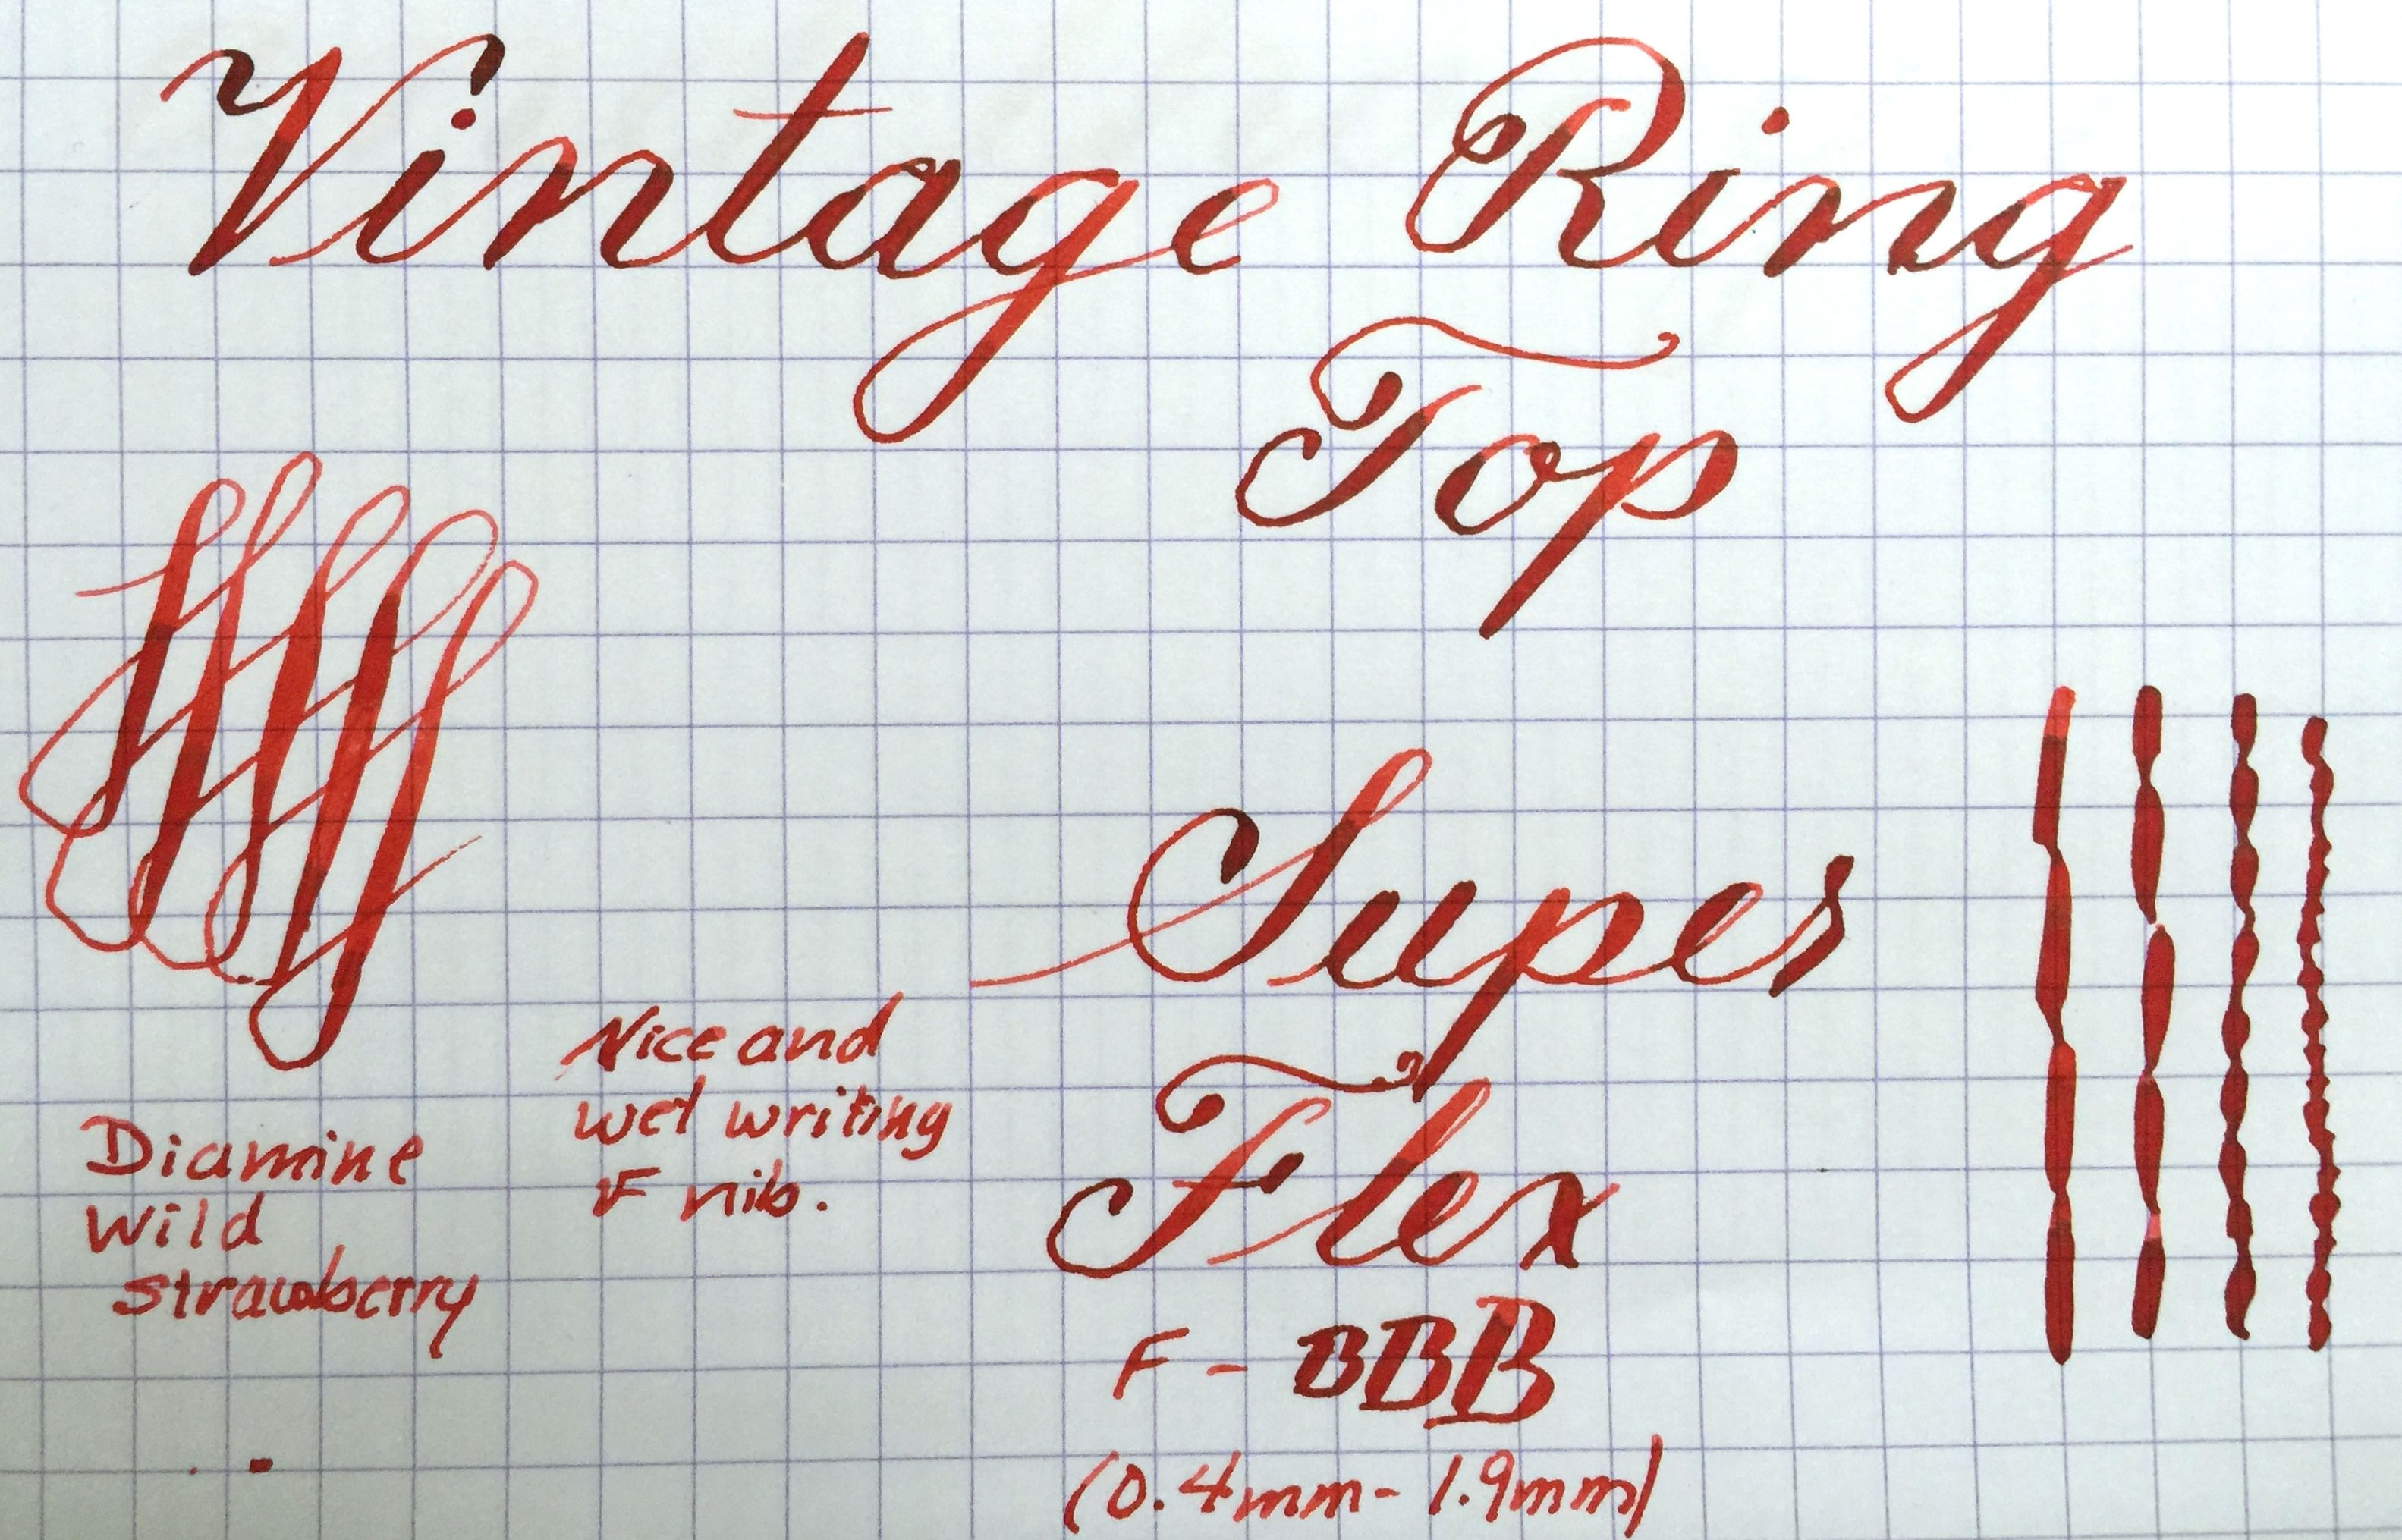 Vintage Ring
Top
Super
Flex
F - BBB
(0.4mm - 1.9mm)
Nice and
wet writing
F nib.
Diamine
Wild
Strawberry